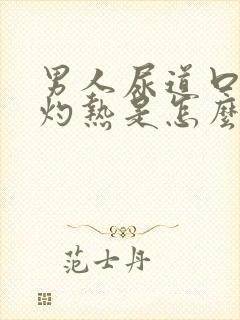 男人尿道口
灼熱是怎麼
范士丹